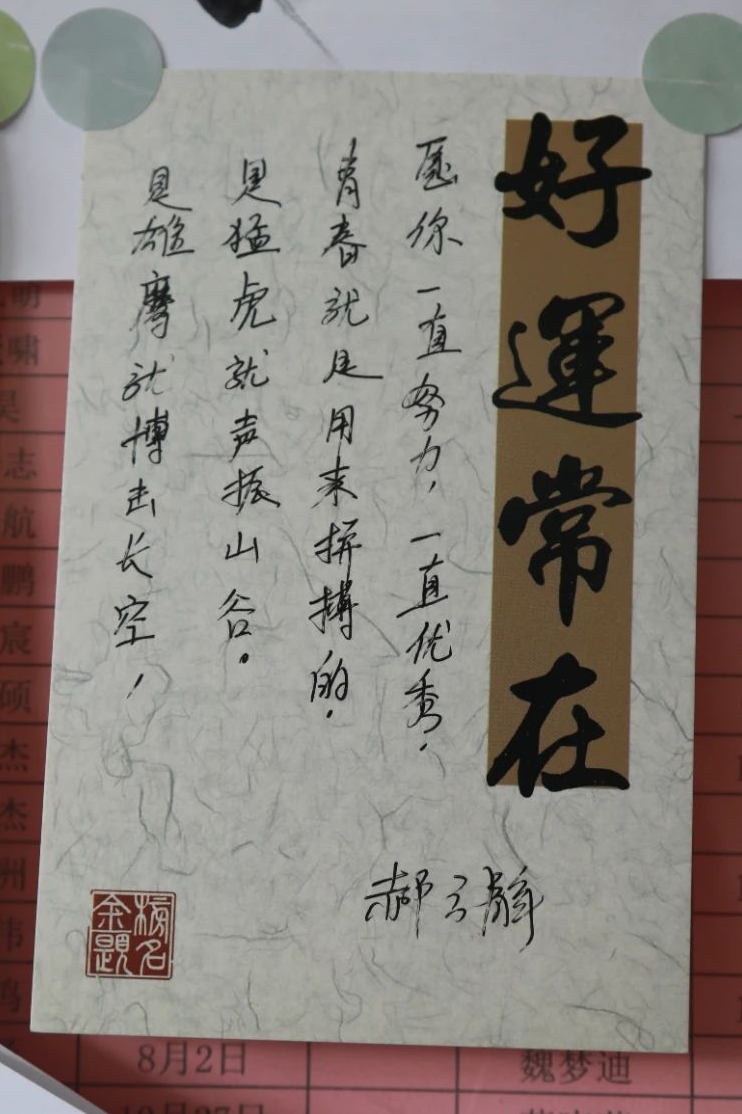 好運常在
愿你一直努力，一直优秀．
青春就是用来拼搏的．
是猛虎就声振山谷．
是雄鹰就博击长空！
郝云
金榜題名
明
啸
吴
志
航
鹏
宸
硕
杰
杰
州
伟
8月2日 魏梦迪
10月27日